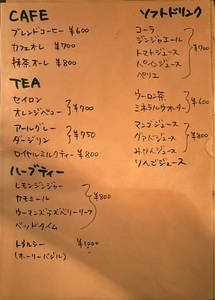 CAFE
ブレンドコーヒー ¥600
カフェオレ ¥700
抹茶オーレ ¥800
TEA
セイロン
オレンジペコー
¥700
アールグレー
ダージリン
¥750
ロイヤルミルクティー ¥800
ハーブティー
レモンジンジャー
カモミール
ウーマンズラズベリーリーフ
ベッドタイム
¥800
トゥルシー ¥1000
(ホーリーバジル)
ソフトドリンク
コーラ
ジンジャエール
トマトジュース
パインジュース
ペリエ
¥700
ウーロン茶
ミネラルウォーター
¥600
マンゴジュース
グァバジュース
みかんジュース
りんごジュース
¥800